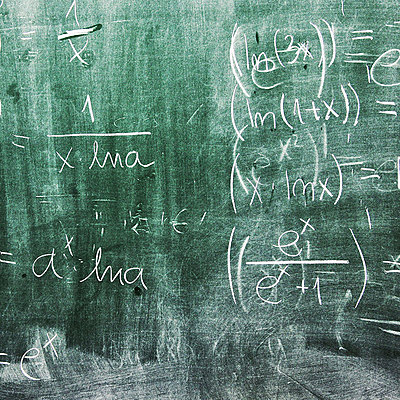 = 1/x
= 1/(x · lna)
= a^x · lna
= e^x
(ln(3x))' = e
(ln(1+x))' =
(x · lnx)' = e
(e^x/(e^x+1))' =
=